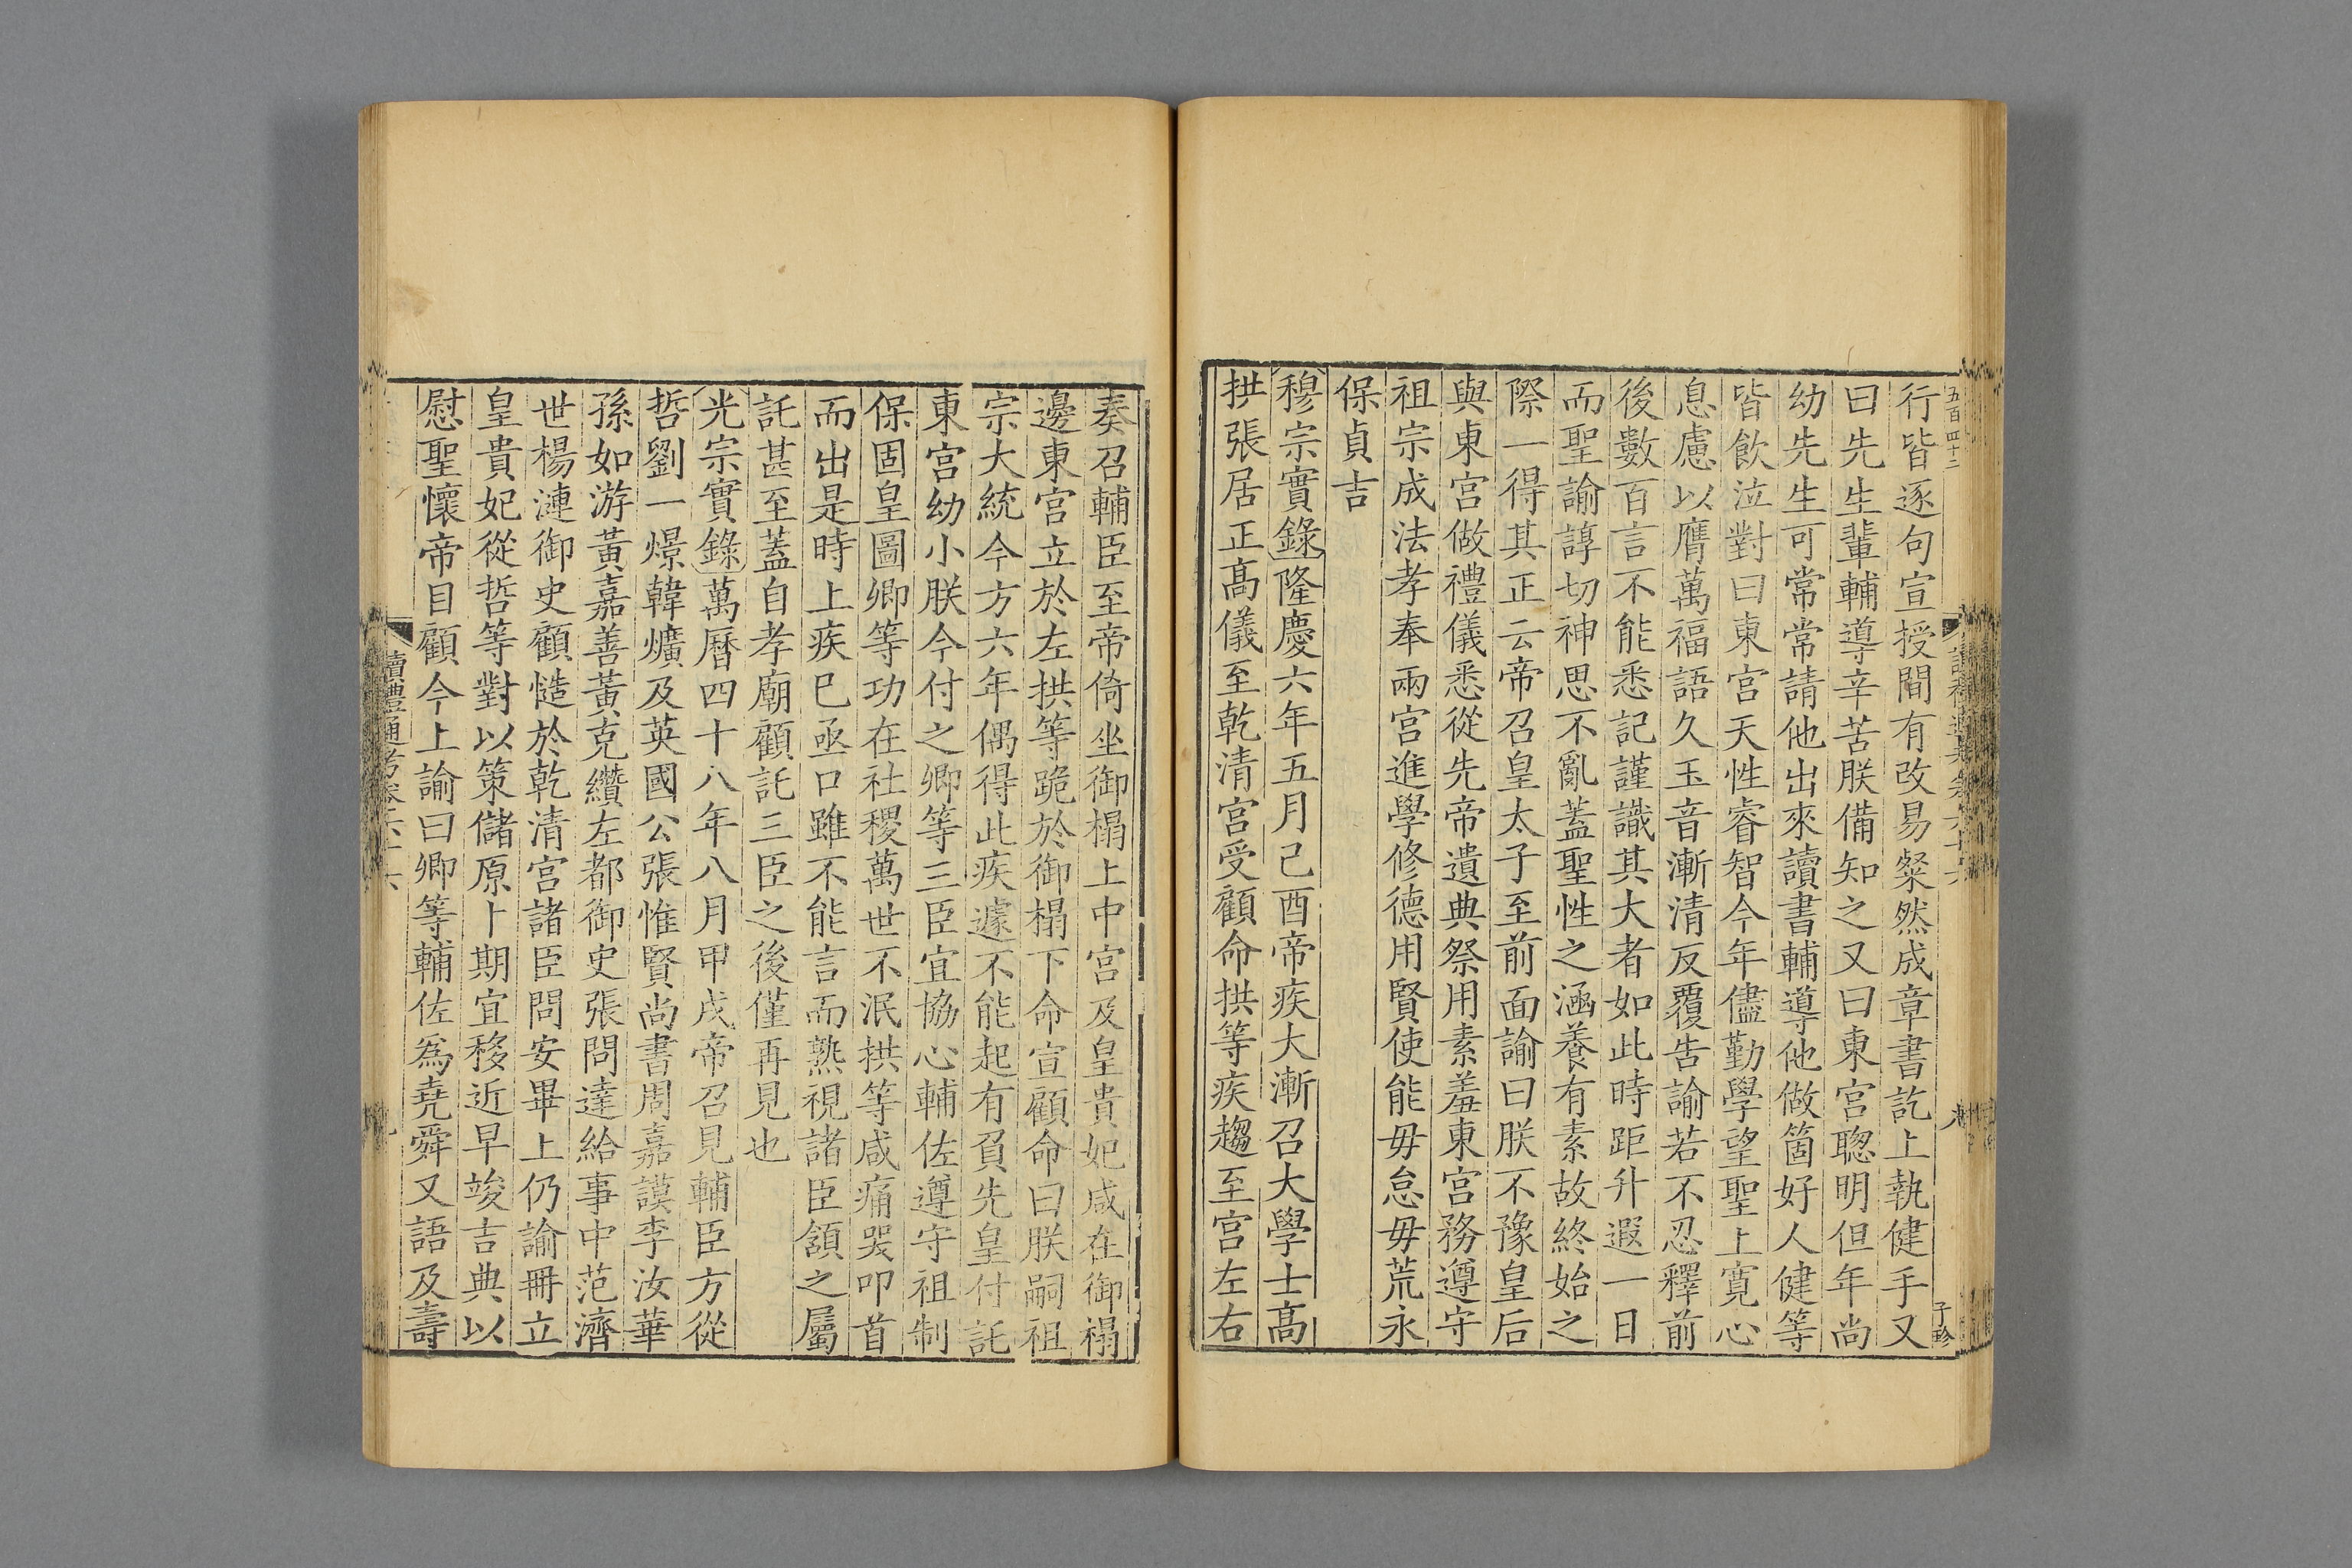 五百四十二
行皆逐句宣授間有改易粲然成章書訖上執健手又
曰先生輩輔導辛苦朕備知之又曰東宮聰明但年尚
幼先生可常常請他出來讀書輔導他做箇好人健等
皆飲泣對曰東宮天性睿智今年儘勤學望聖上寬心
息慮以膺萬福語久玉音漸清反覆告諭若不忍釋前
後數百言不能悉記謹識其大者如此時距升遐一日
而聖諭諄切神思不亂蓋聖性之涵養有素故終始之
際一得其正云帝召皇太子至前面諭曰朕不豫皇后
與東宮做禮儀悉從先帝遺典祭用素羞東宮務遵守
祖宗成法孝奉兩宮進學修德用賢使能毋怠毋荒永
保貞吉
穆宗實錄隆慶六年五月己酉帝疾大漸召大學士高
拱張居正高儀至乾清宮受顧命拱等疾趨至宮左右
子珍
奏召輔臣至帝倚坐御榻上中宮及皇貴妃咸在御榻
邊東宮立於左拱等跪於御榻下命宣顧命曰朕嗣祖
宗大統今方六年偶得此疾遽不能起有負先皇付託
東宮幼小朕今付之卿等三臣宜協心輔佐遵守祖制
保固皇圖卿等功在社稷萬世不泯拱等咸痛哭叩首
而出是時上疾已亟口雖不能言而熟視諸臣頷之屬
託甚至蓋自孝廟顧託三臣之後僅再見也
光宗實錄萬曆四十八年八月甲戌帝召見輔臣方從
哲劉一燝韓爌及英國公張惟賢尚書周嘉謨李汝華
孫如游黃嘉善黃克纘左都御史張問達給事中范濟
世楊漣御史顧慥於乾清宮諸臣問安畢上仍諭冊立
皇貴妃從哲等對以策儲原卜期宜移近早竣吉典以
慰聖懷帝目顧今上諭曰卿等輔佐爲堯舜又語及壽
讀禮通考卷六十六